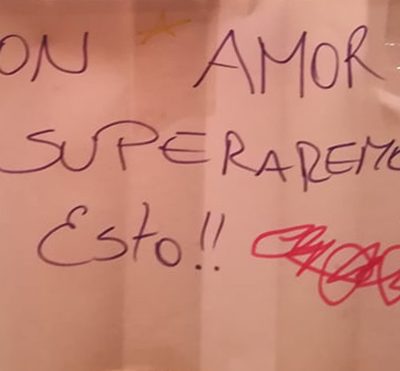 ON AMOR
SUPERAREMO
Esto!!